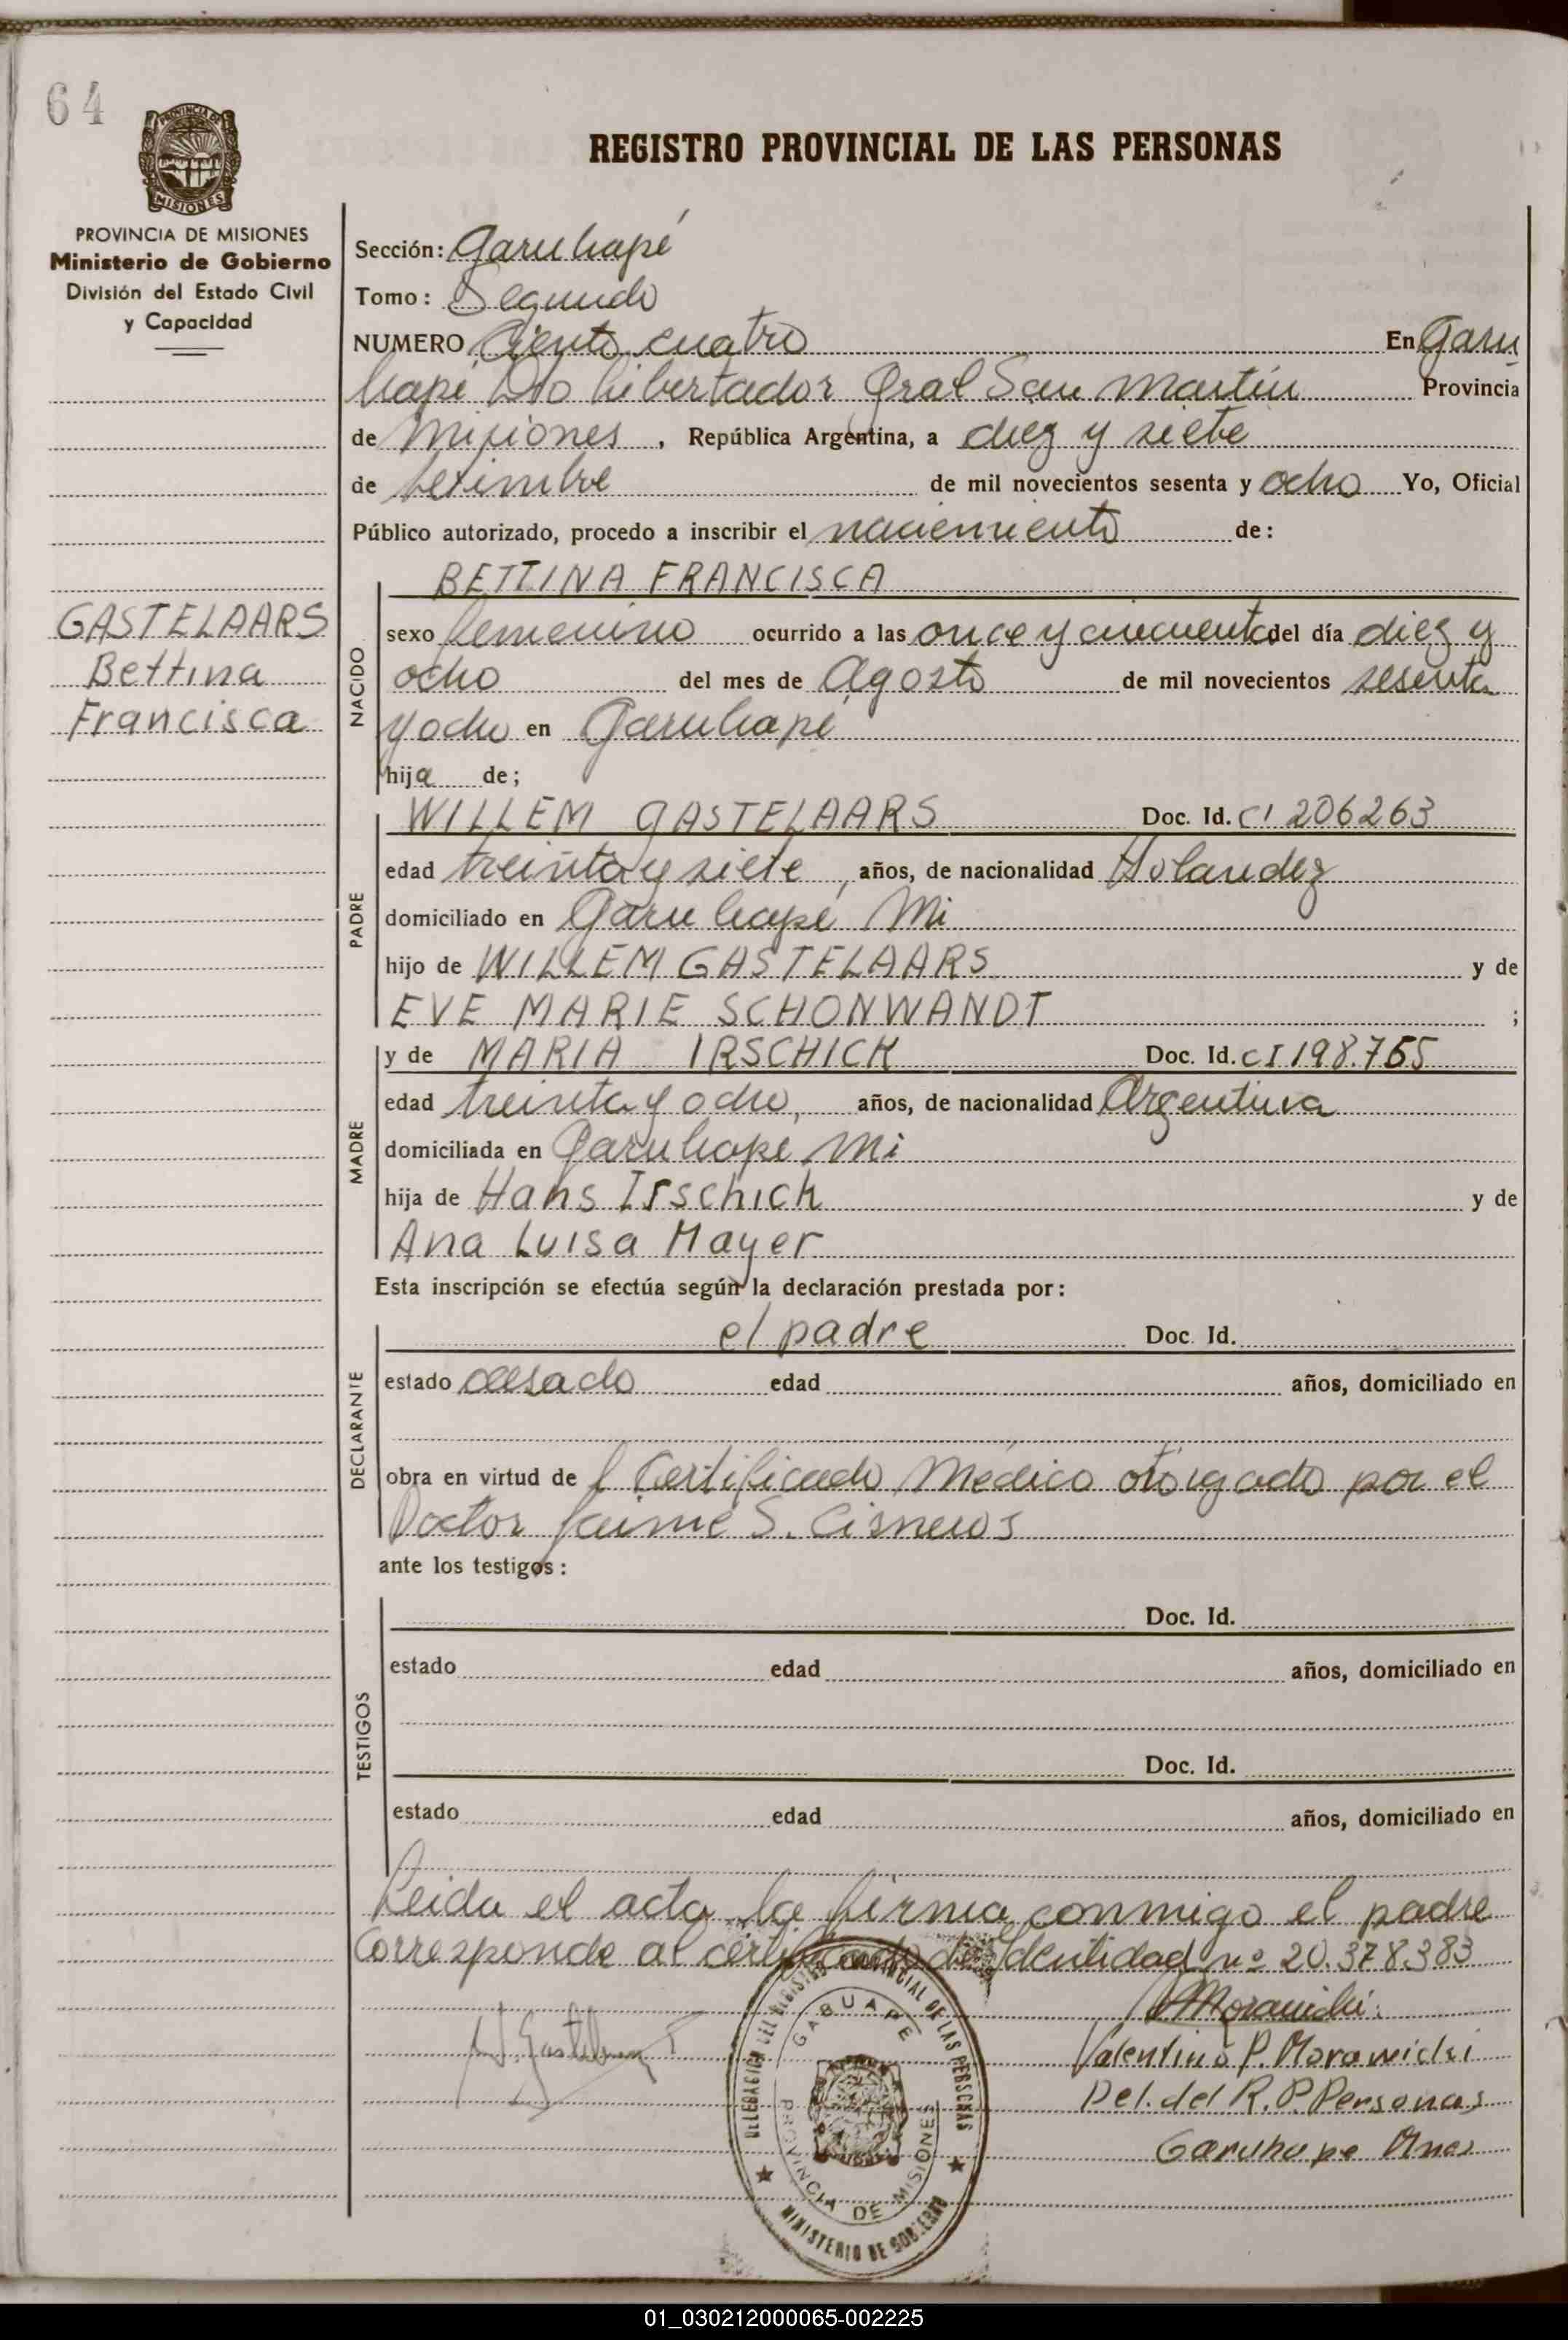 64
PROVINCIA DE MISIONES
REGISTRO PROVINCIAL DE LAS PERSONAS
PROVINCIA DE MISIONES
Ministerio de Gobierno
División del Estado Civil
y Capacidad
GASTELAARS
Bettina
Francisca
Sección: Garuhapé
Tomo: Segundo
NUMERO Ciento cuatro En Garu
hapé Dto Libertador Gral San Martin Provincia
de Misiones , República Argentina, a diez y siete
de Setimbre de mil novecientos sesenta y ocho Yo, Oficial
Público autorizado, procedo a inscribir el nacimiento de:
BETTINA FRANCISCA
NACIDO
sexo femenino ocurrido a las once y cincuenta del día diez y
ocho del mes de Agosto de mil novecientos sesenta
y ocho en Garuhapé
hija de;
WILLEM GASTELAARS Doc. Id. CI 206263
PADRE
edad treinta y siete , años, de nacionalidad Holandez
domiciliado en Garuhapé Mi
hijo de WILLEM GASTELAARS y de
EVE MARIE SCHONWANDT ;
y de MARIA IRSCHICK Doc. Id. CI 198.765
MADRE
edad treinta y ocho, años, de nacionalidad Argentina
domiciliada en Garuhape Mi
hija de Hans Irschick y de
Ana Luisa Mayer
Esta inscripción se efectúa según la declaración prestada por:
el padre Doc. Id.
DECLARANTE
estado casado edad años, domiciliado en
obra en virtud de l Certificado Médico otorgado por el
Doctor Jaime S. Cisneros
ante los testigos:
Doc. Id.
TESTIGOS
estado edad años, domiciliado en
Doc. Id.
estado edad años, domiciliado en
Leida el acta la firma conmigo el padre
Corresponde al certificado de Identidad nº 20.378.383
W. Gastelaars
Valentino P. Morawicki
Del. del R. P. Personas
Garuhape Mnes
DELEGACION DEL REGISTRO PROVINCIAL DE LAS PERSONAS
GARUAPE
PROVINCIA DE MISIONES
MINISTERIO DE GOBIERNO
01_030212000065-002225